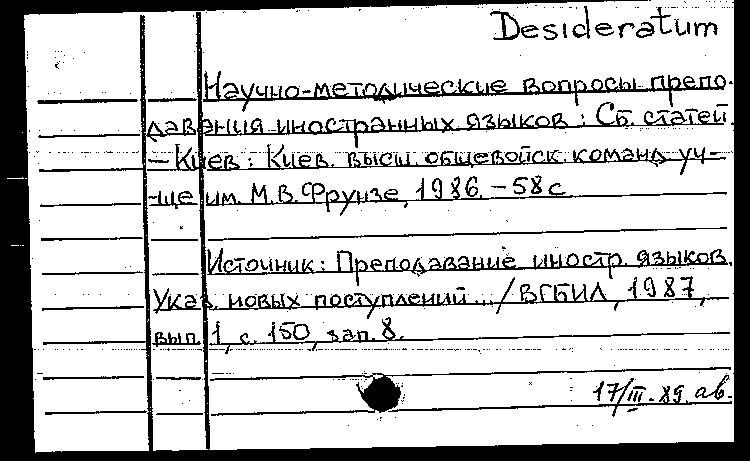 Desideratum
Научно-методические вопросы препо-
давания иностранных языков : Сб. статей.
– Киев : Киев. высш. общевойск. команд. уч-
-ще им. М.В. Фрунзе, 1986. – 58 с
Источник : Преподавание иностр. языков.
Указ. новых поступлений... / ВГБИЛ, 1987,
вып. 1, с. 150, зап. 8.
17/III. 89 ав.